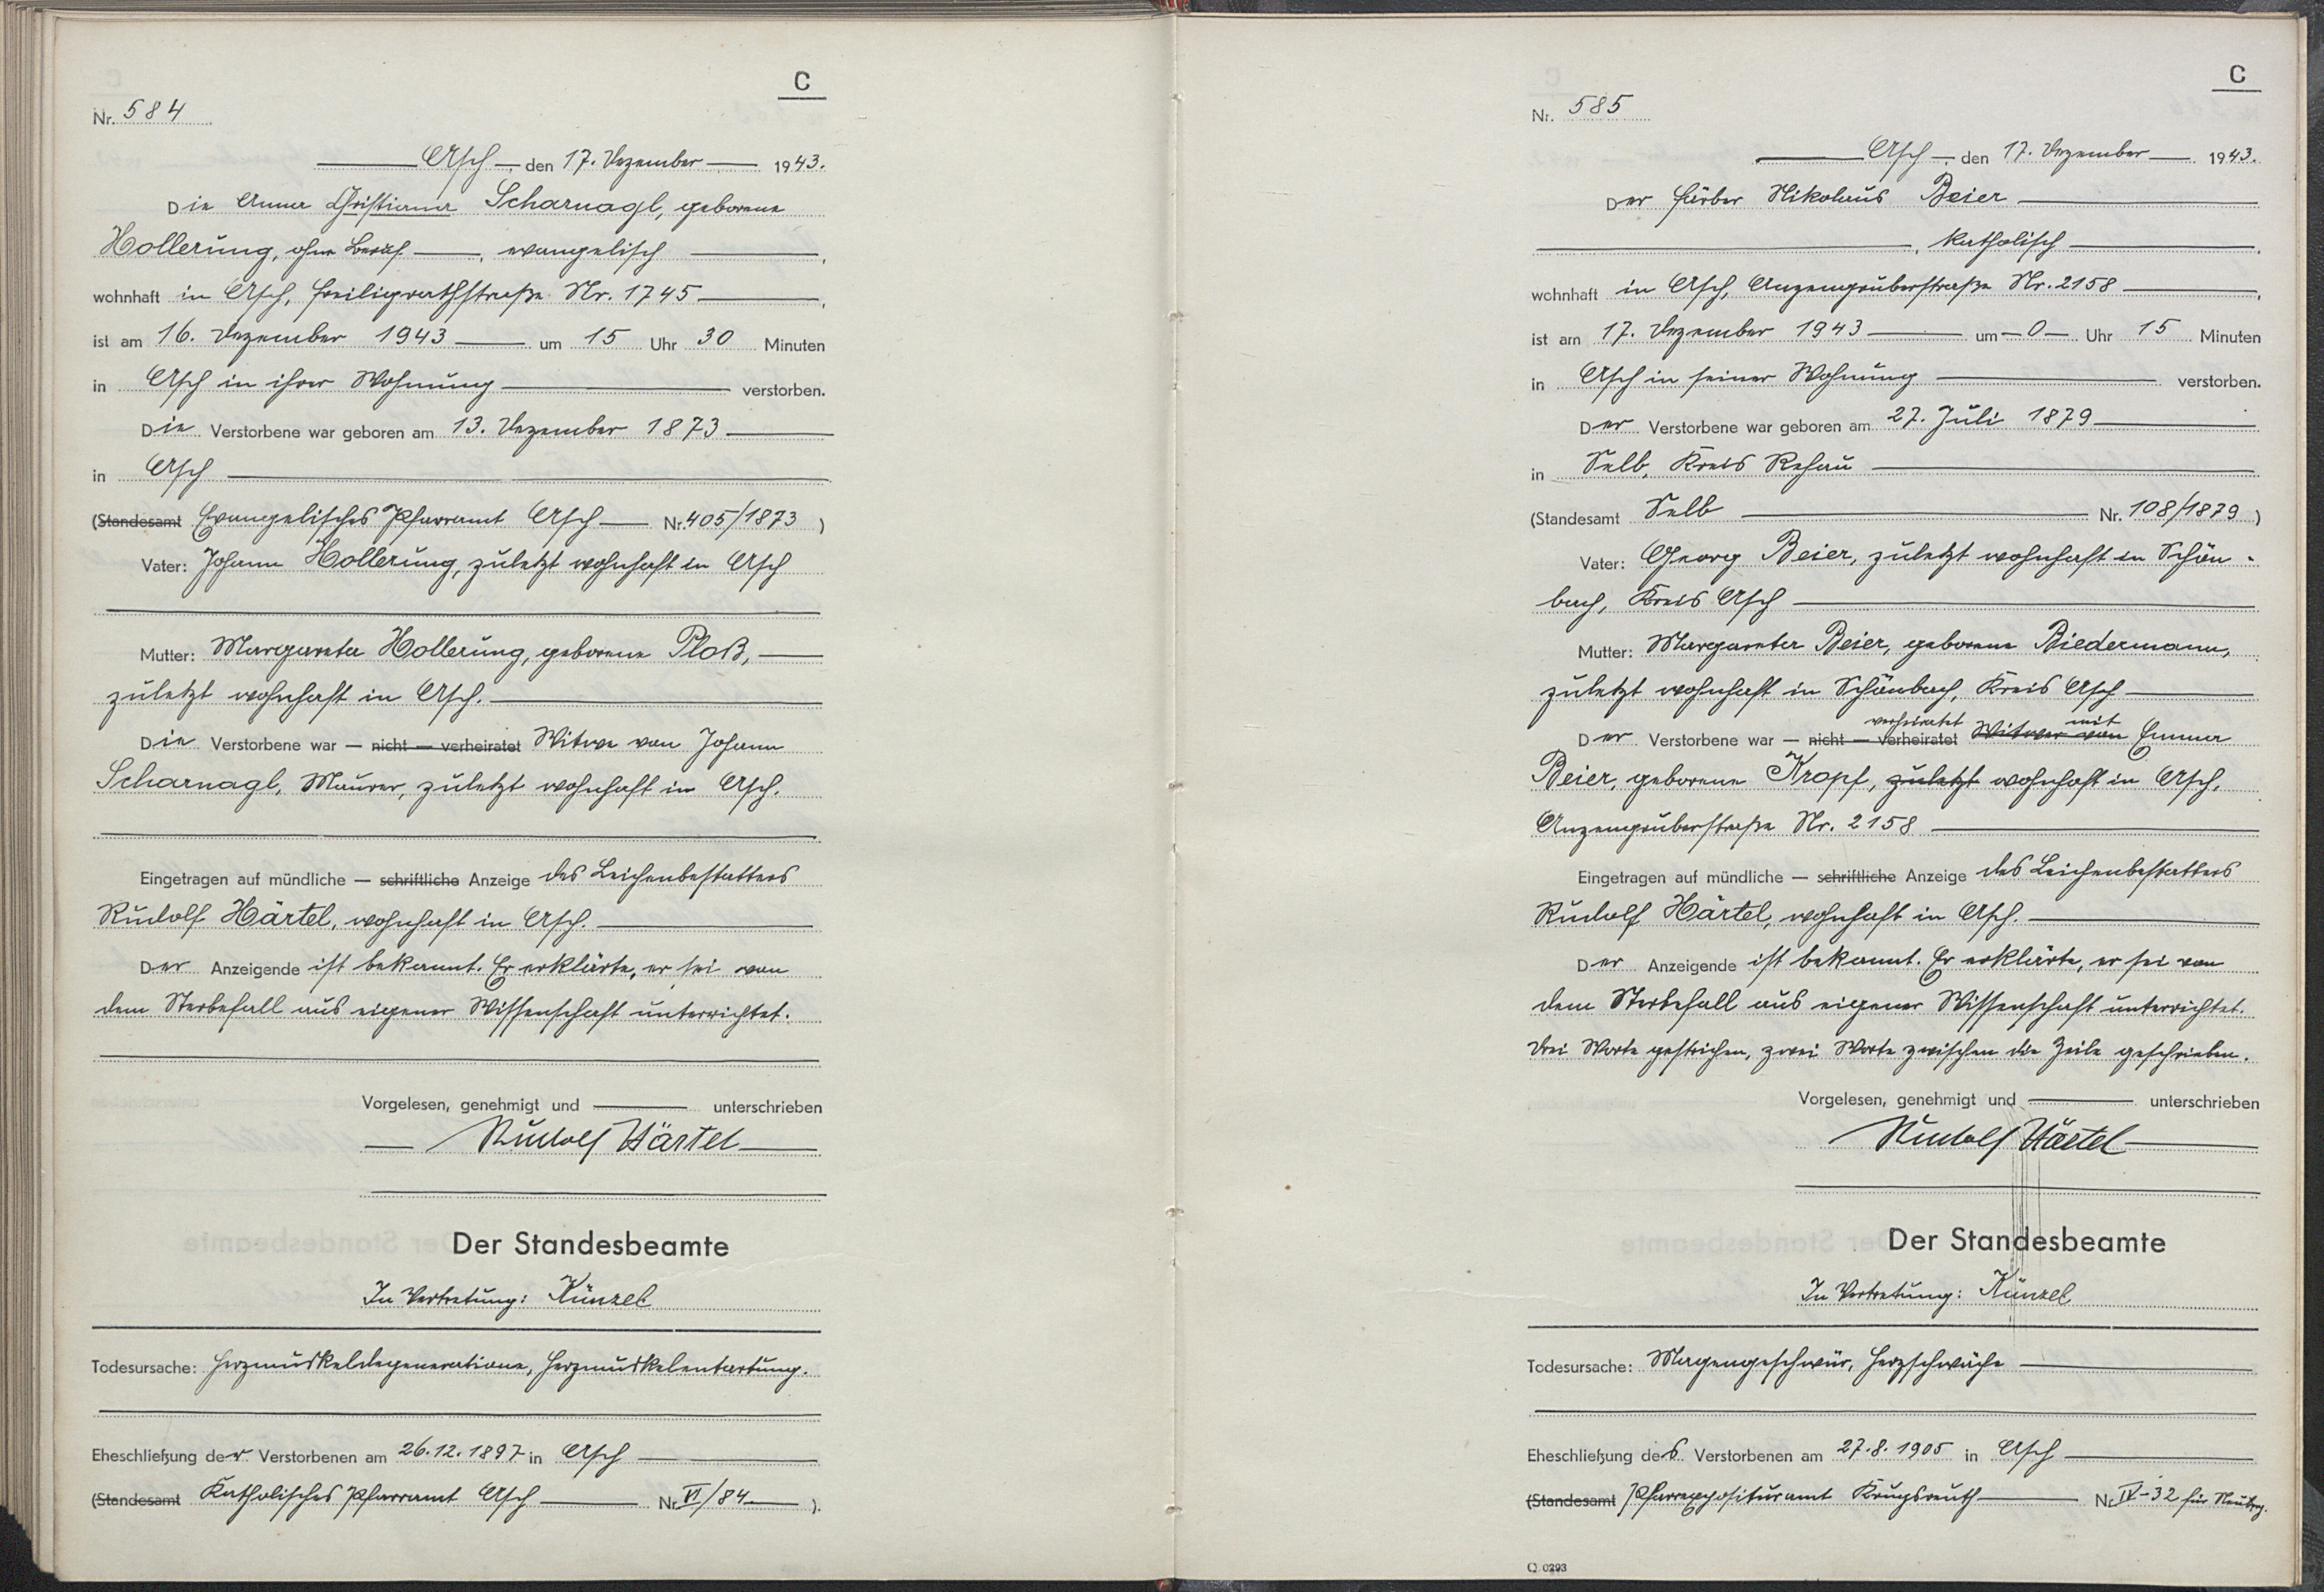 C
Nr. 584
Asch, den 17. Dezember 1943.
Die Anna Christiana Scharnagl, geborene
Hollerung, ohne Beruf, evangelisch,
wohnhaft in Asch, Freiligrathstraße Nr. 1745,
ist am 16. Dezember 1943 um 15 Uhr 30 Minuten
in Asch in ihrer Wohnung verstorben.
Die Verstorbene war geboren am 13. Dezember 1873
in Asch
(Standesamt Evangelisches Pfarramt Asch Nr. 405/1873)
Vater: Johann Hollerung, zuletzt wohnhaft in Asch
Mutter: Margareta Hollerung, geborene Ploß,
zuletzt wohnhaft in Asch.
Die Verstorbene war — nicht — verheiratet Witwe von Johann
Scharnagl, Maurer, zuletzt wohnhaft in Asch.
Eingetragen auf mündliche — schriftliche Anzeige des Leichenbestatters
Rudolf Härtel, wohnhaft in Asch.
Der Anzeigende ist bekannt. Er erklärte, er sei von
dem Sterbefall aus eigener Wissenschaft unterrichtet.
Vorgelesen, genehmigt und unterschrieben
Rudolf Härtel
Der Standesbeamte
In Vertretung: Künzel
Todesursache: Herzmuskeldegeneratione, Herzmuskelentartung.
Eheschließung der Verstorbenen am 26.12.1897 in Asch
(Standesamt Katholisches Pfarramt Asch Nr. VI/84).
C
Nr. 585
Asch, den 17. Dezember 1943.
Der Färber Nikolaus Beier
, katholisch,
wohnhaft in Asch, Anzengruberstraße Nr. 2158,
ist am 17. Dezember 1943 um 0 Uhr 15 Minuten
in Asch in seiner Wohnung verstorben.
Der Verstorbene war geboren am 27. Juli 1879
in Selb, Kreis Rehau
(Standesamt Selb Nr. 108/1879)
Vater: Georg Beier, zuletzt wohnhaft in Schön-
bach, Kreis Asch
Mutter: Margareta Beier, geborene Biedermann,
zuletzt wohnhaft in Schönbach, Kreis Asch
verheiratet mit
Der Verstorbene war — nicht — verheiratet Witwer von Emma
Beier, geborene Kropf, zuletzt wohnhaft in Asch,
Anzengruberstraße Nr. 2158
Eingetragen auf mündliche — schriftliche Anzeige des Leichenbestatters
Rudolf Härtel, wohnhaft in Asch.
Der Anzeigende ist bekannt. Er erklärte, er sei von
dem Sterbefall aus eigener Wissenschaft unterrichtet.
Drei Worte gestrichen, zwei Worte zwischen die Zeile geschrieben.
Vorgelesen, genehmigt und unterschrieben
Rudolf Härtel
Der Standesbeamte
In Vertretung: Künzel
Todesursache: Magengeschwür, Herzschwäche
Eheschließung des Verstorbenen am 27.8.1905 in Asch
(Standesamt Pfarrexpositur amt Krugsreuth Nr. IV-32 für Neuberg.
Q 0293